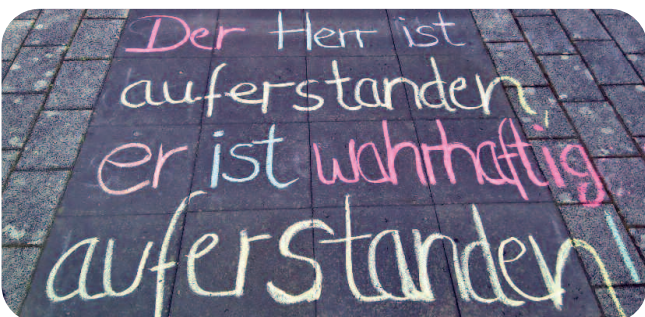 Der Herr ist
auferstanden,
er ist wahrhaftig
auferstanden!